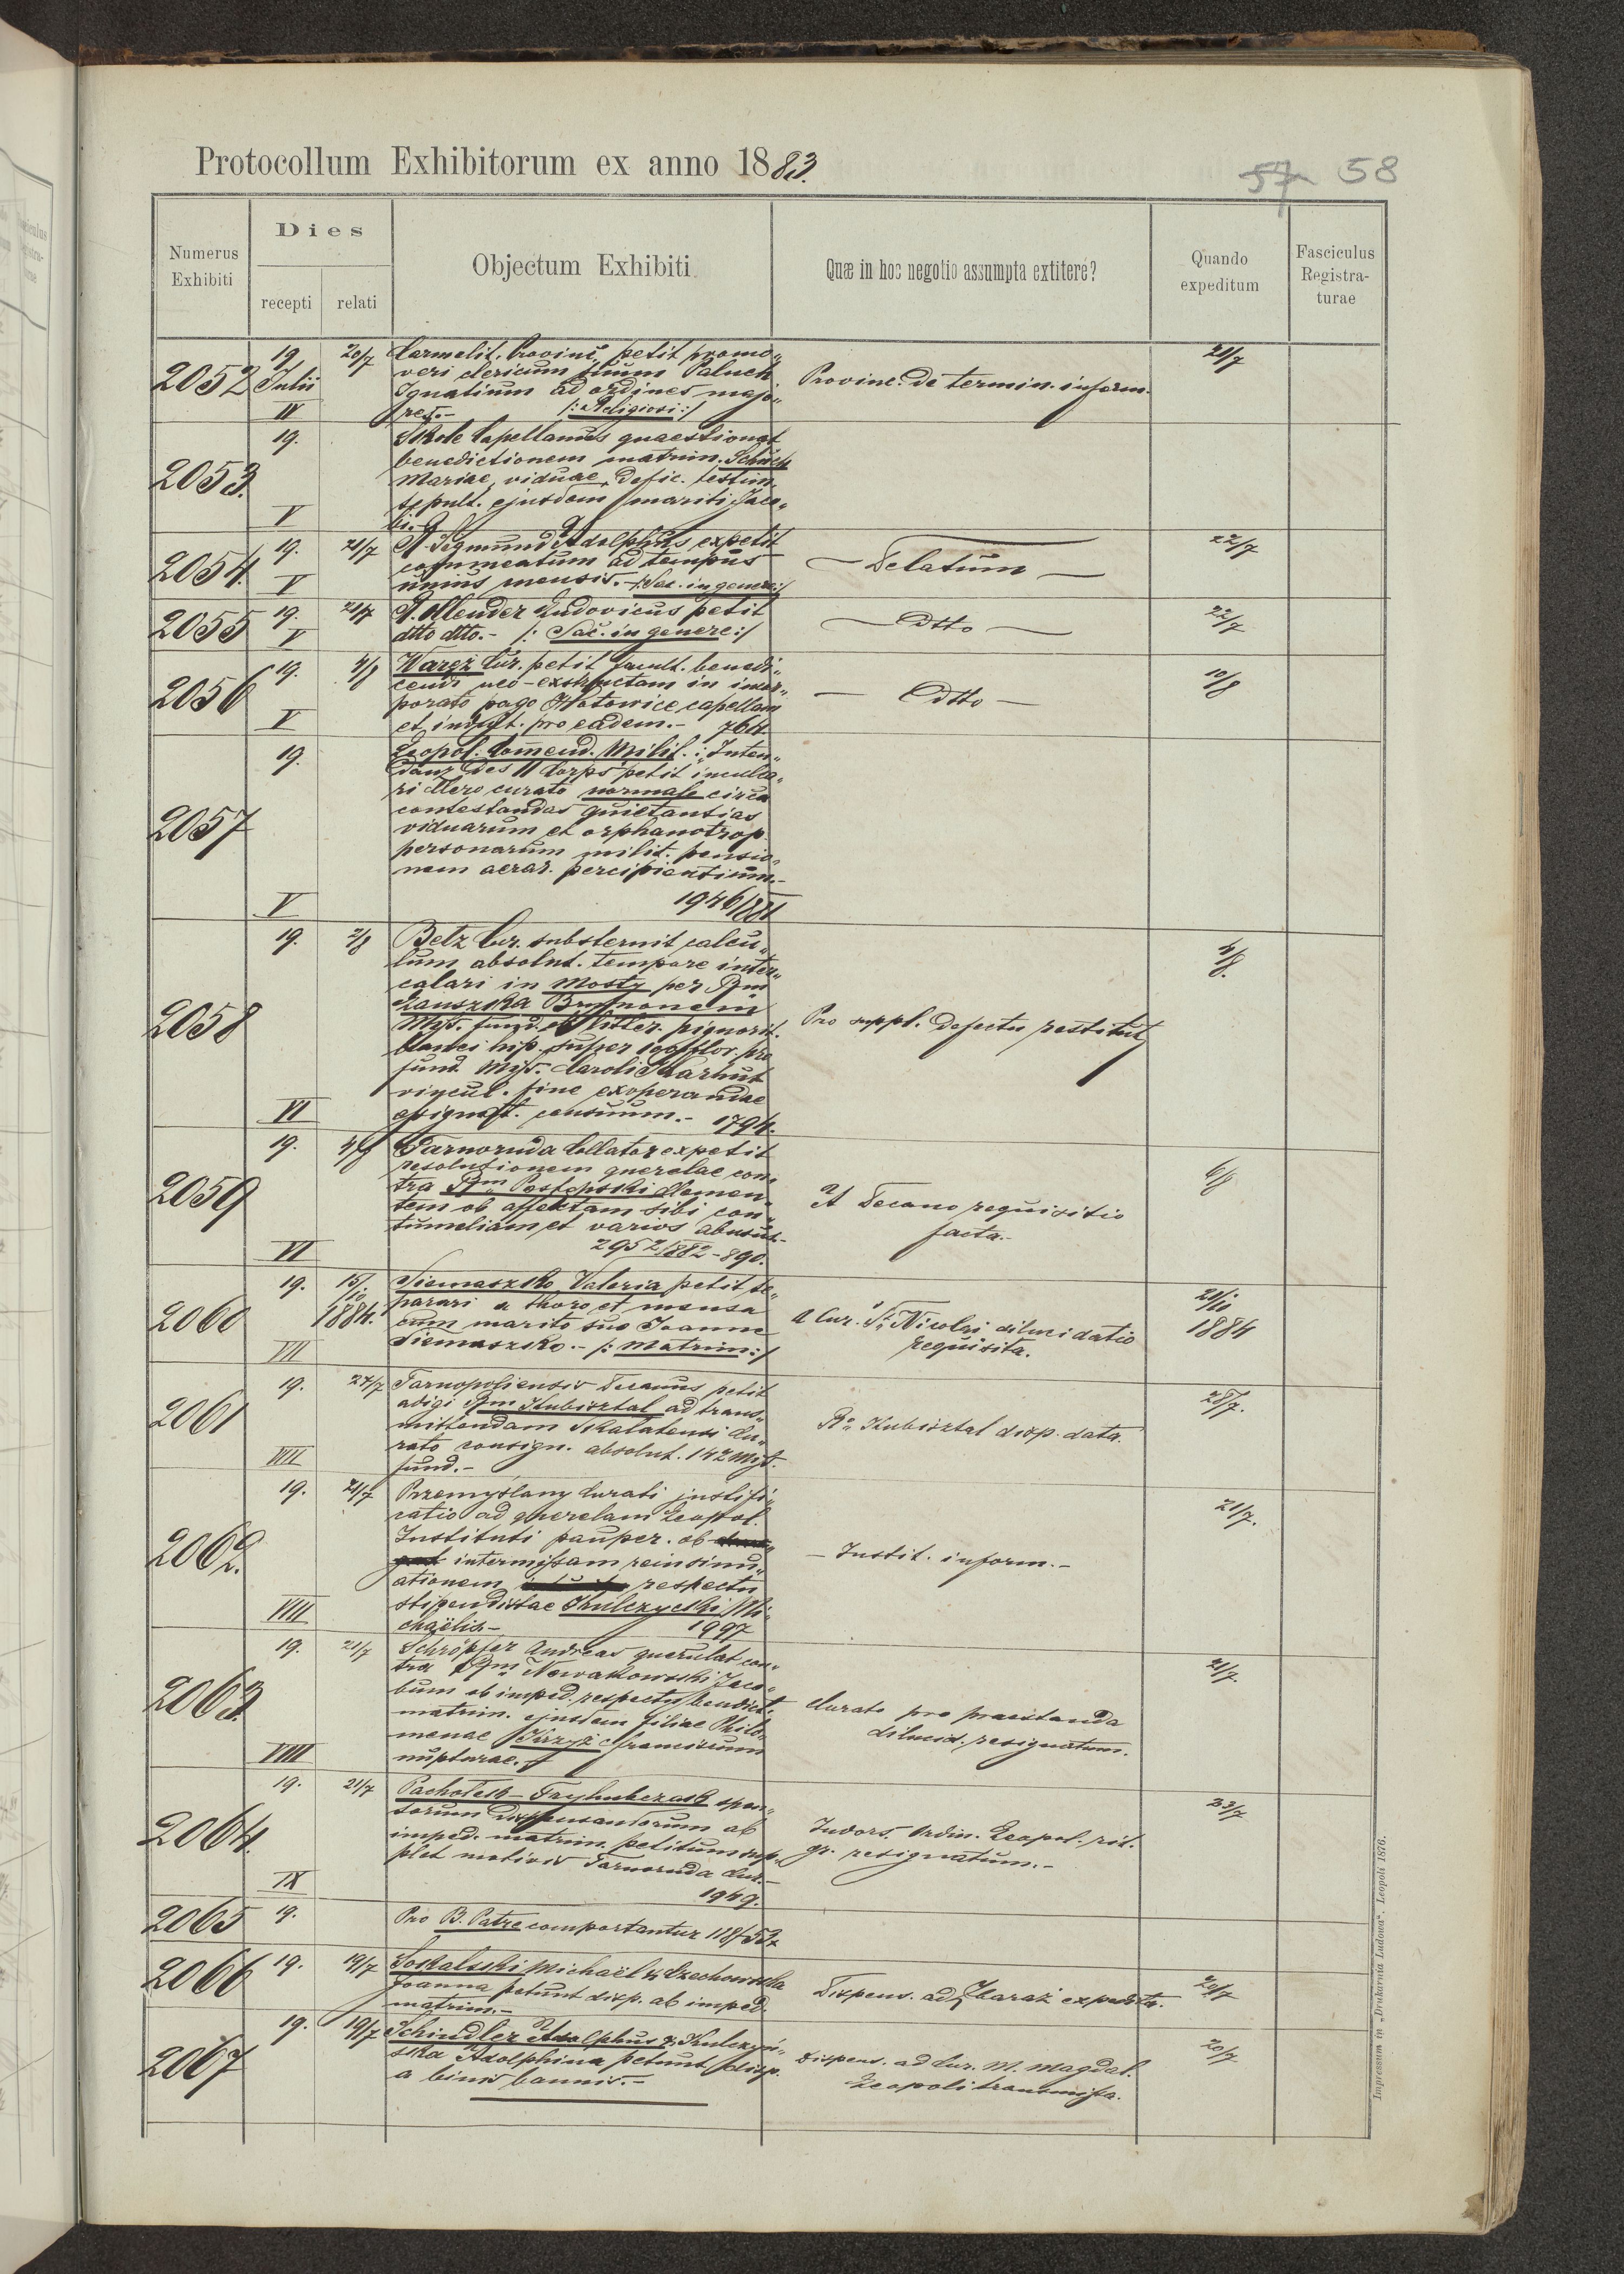 Protocollum Exhibitorum ex anno 1883.
57 58
Numerus Exhibiti
Dies
recepti relati
Objectum Exhibiti
Quæ in hoc negotio assumpta extitere?
Quando expeditum
Fasciculus Registra-
turae
2052 19 Julii IV 20/7
Carmelit. Provinc. petit promo„
veri clericum suum Paluch
Ignatium ad ordines majo„
res.- /:Religiosi:/
Provinc. de termin. inform.
21/7
2053. 19. V
Skole Capellanus quaestionat
benedictionem matrim. Schöch
Mariae, viduae, defic. testim.
sepult. ejusdem mariti Jaco„
bi.
2054. 19. V 21/7
R. Segmund Adolphus expetit
commeatum ad tempus
unius mensis. - /:Sac. in genere:/
— Delatum —
22/7
2055 19. V 21/7
R. Ollender Ludovicus petit
dtto dtto.- /: Sac. in genere:/
— Dtto —
22/7
2056 19. V 4/8
Waręż Cur. petit facult. benedi„
cendi neo-exstructam in incor„
porato pago Chotowice capellam
et indult. pro eadem.- 764.
— Dtto —
10/8
2057 19. V
Leopol. Commend. Milit.: „Inten„
danz des 11 Corps" petit inculca„
ri Clero curato normale circa
contestandas quietantias
viduarum et orphanotrop.
personarum milit. pensio„
nem aerar. percipientium.-
1946/881
2058 19. VI 2/8
Betz Cur. substernit calcu„
lum absolut. tempore inter„
calari in Mosty per Rm
Zauszka Brunonem
Mss. fund. et litter. pignorat.
banci hip. super flor. pro
fund. Mss. Caroli Karnut
vincul. fine exoperandae
assignat. censuum.- 1794.
Pro suppl. defectu restitut
4/8.
2059 19. VI 4/8
Tarnoruda Collator expetit
resolutionem querelae con„
tra Rm Postępski Clemen„
tem ob affectam sibi con„
tumeliam et varios abusus.-
2952/882-890.
A Decano requisitio
facta.-
6/8
2060 19. VII 15/10 1884.
Siemaszko Valeria petit se„
parari a thoro et mensa
cum marito suo Joanne
Siemaszko.- /: Matrim:/
A Cur. St. Nicolai dilucidatio
requisita.
20/10
1884
2061 19. VIII 27/7
Tarnopoliensis Decanus petit
adigi Rm Kubisztal ad trans„
mittendam Skalatensi Cu„
rato consign. absolut. 142 Mss.
fund.-
Ro. Kubisztal disp. data.
28/7.
2062. 19. VIII 21/7
Przemyślany Curati justifi„
catio ad querelam Leopol.
Instituti pauper. ob
intermissam reinsinu„
ationem respectu
stipendistae Kulczycki Mi„
chaëlis- 1997
— Instit. inform.-
21/7.
2063. 19. VIII 21/7
Schröpfer Andreas querulat con„
tra Rm Nowakowski Jaco„
bum ob imped. respectu benedict.
matrim. ejusdem filiae Philo„
menae Krzyż Franciscum
nupturae.
Curato pro praestanda
dilucid. resignatum.
21/7.
2064. 19. IX 21/7
Pacholesk - Fryhubezash spon„
sorum dispensandorum ab
imped. matrim. petitum sup„
plet motivis Tarnoruda Cur.-
1949.
Indors. Ordin. Leopol. rit.
gr. resignatum.-
23/7
2065 19.
Pro B. Patre comportantur 118 f 53 x
2066 19. 19/7
Soskalski Michaël & Czechowska
Joanna petunt disp. ab imped.
matrim.-
Dispens. ad Zbaraż expedita.
20/7
2067 19. 19/7
Schindler Adolphus & Kulczyń„
ska Adolphina petunt disp.
a binis bannis.-
Dispens. ad Cur. M. Magdal.
Leopoli transmissa.
20/7
Impressum in „Drukarnia Ludowa". Leopoli 1876.